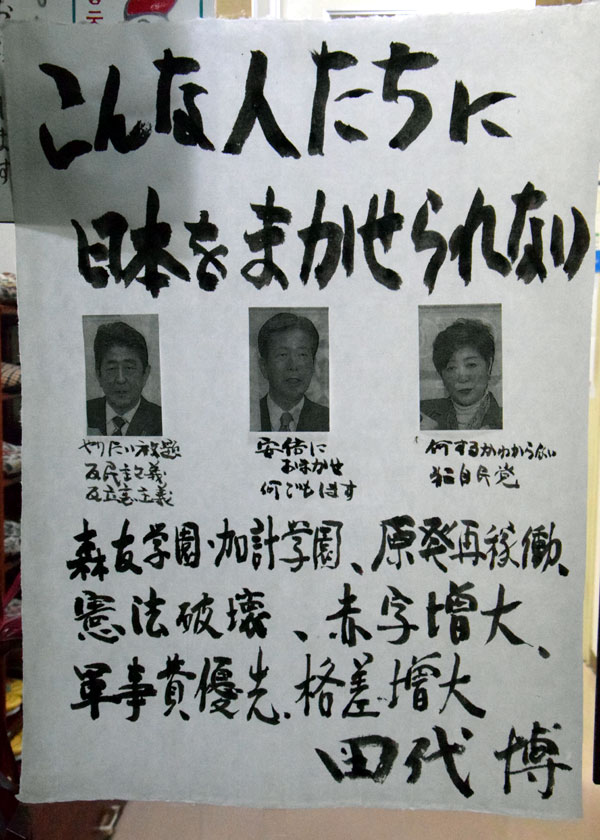 こんな人たちに
日本をまかせられない
やりたい放題
反民主主義
反立憲主義
安倍に
おまかせ
何でもします
何するかわからない
第二自民党
森友学園・加計学園、原発再稼働、
憲法破壊、赤字増大、
軍事費優先、格差増大
田代 博